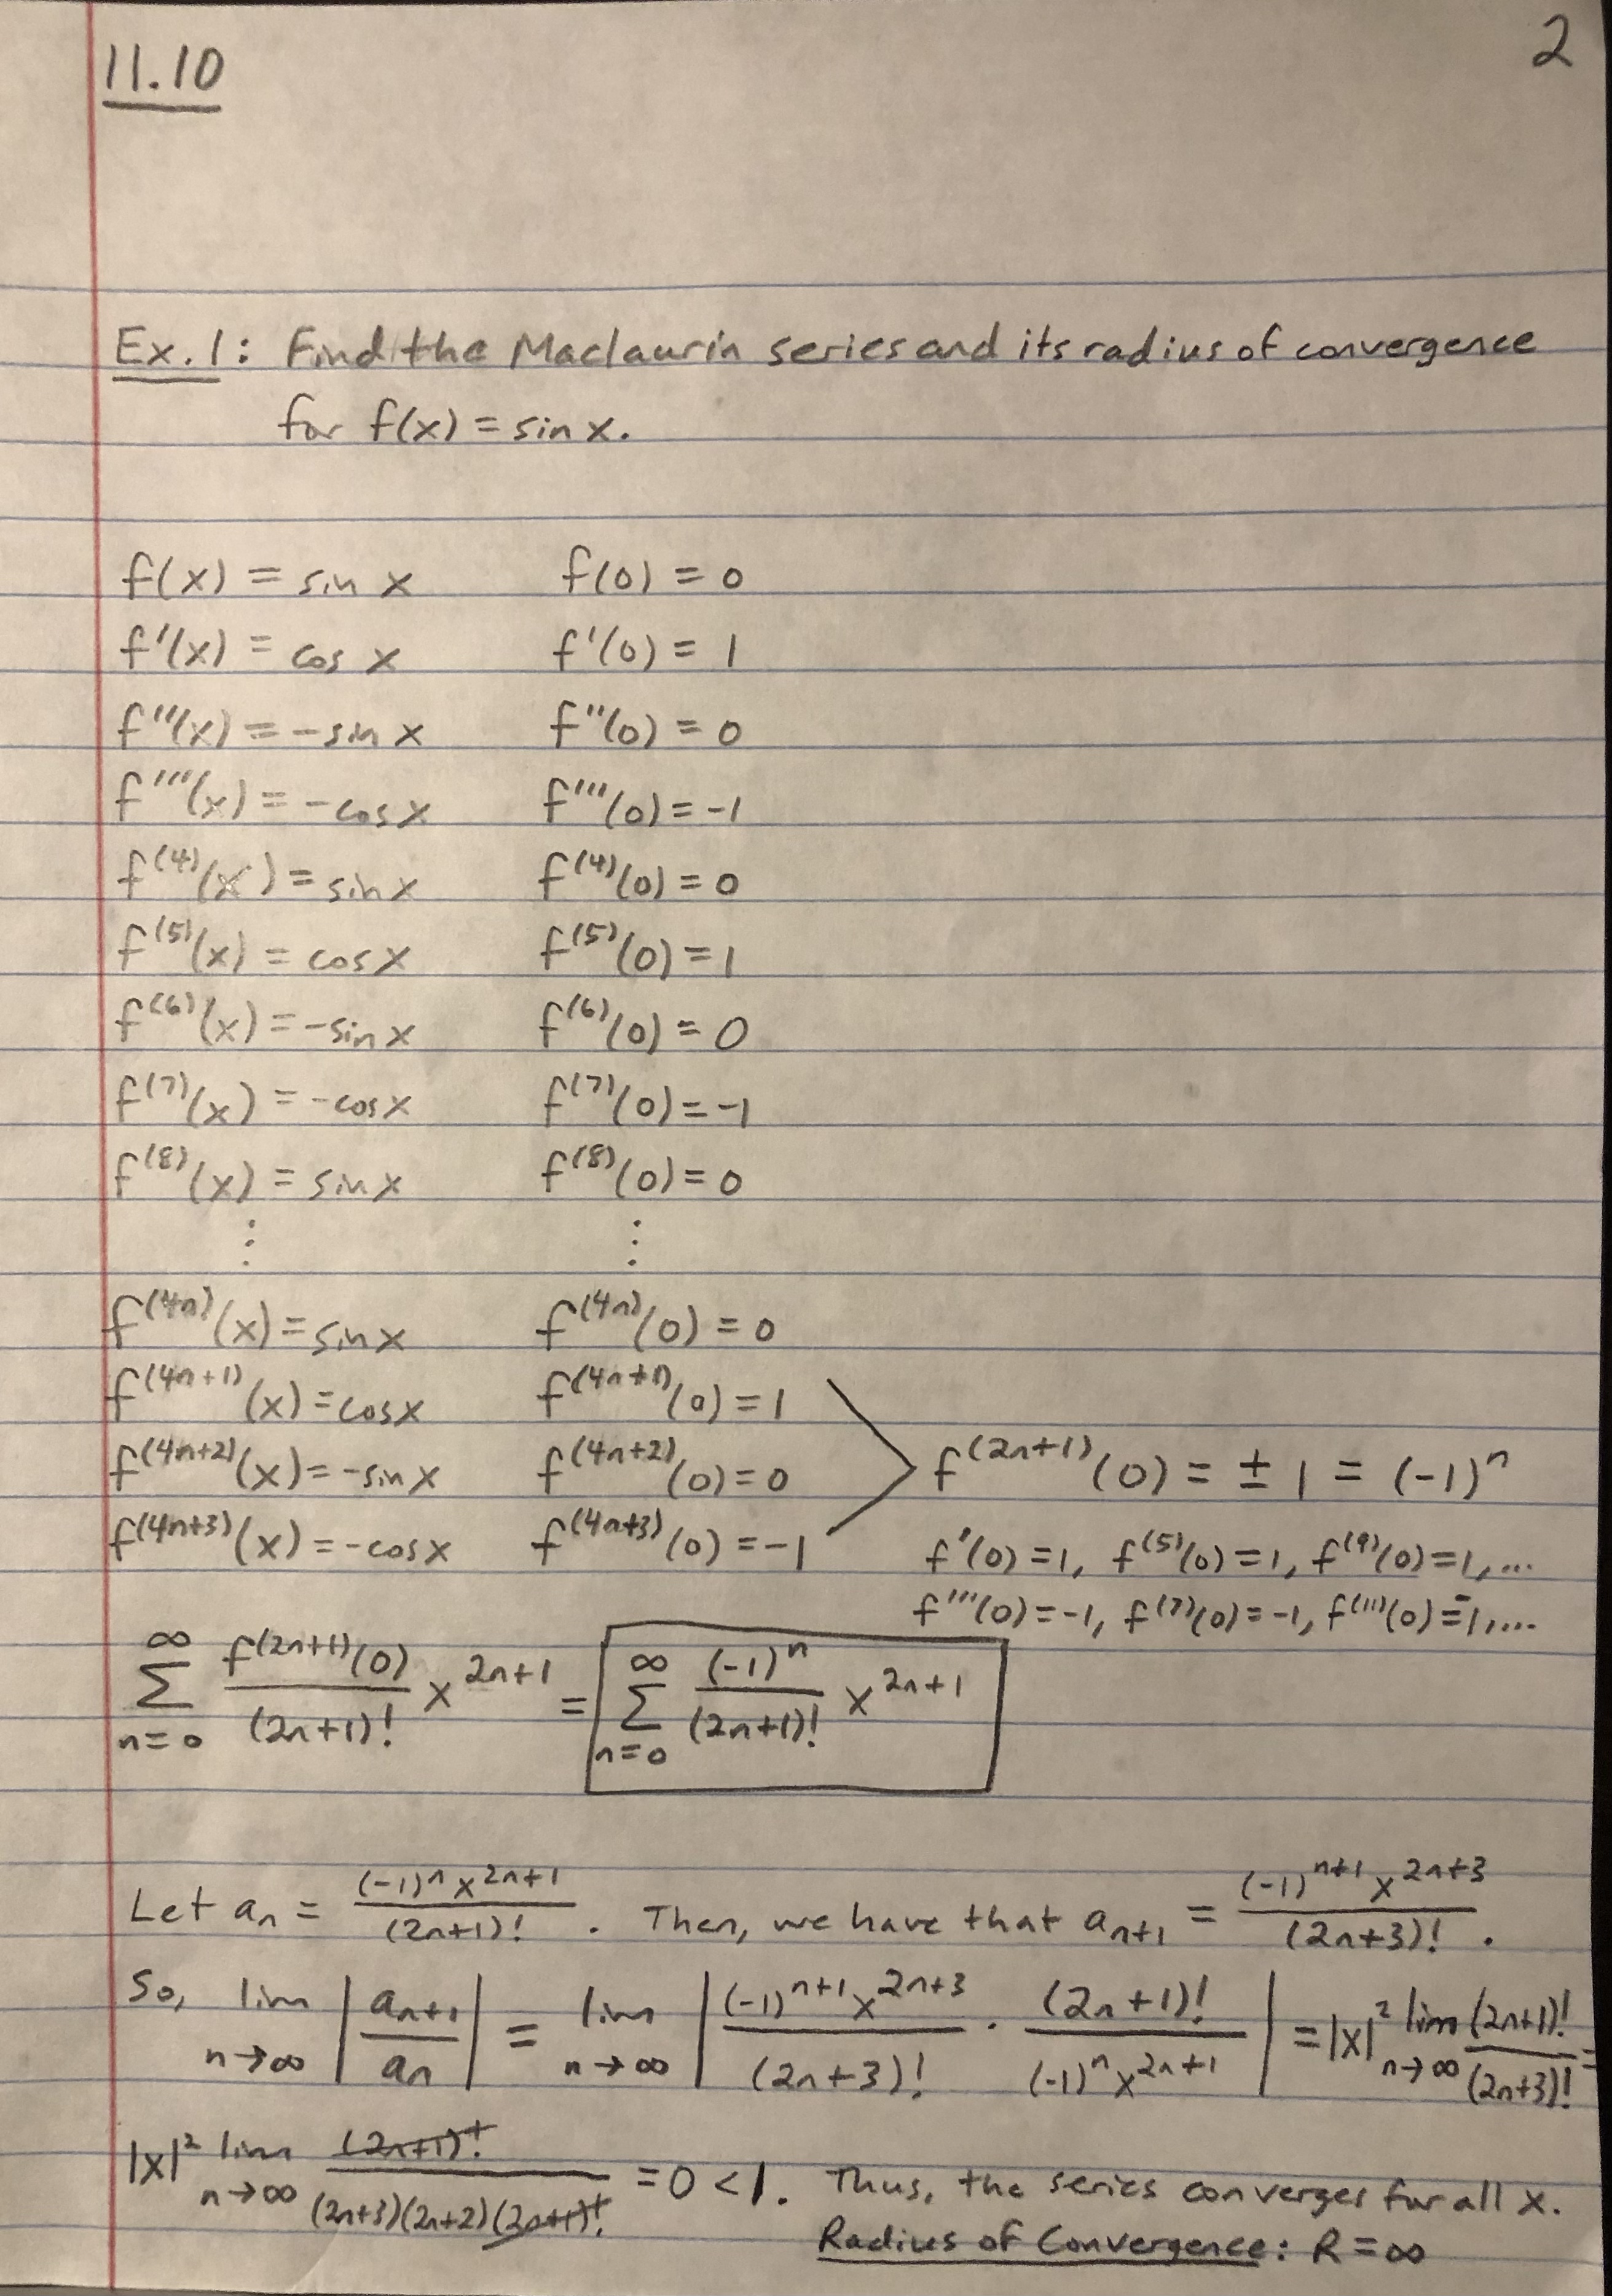 11.10
2
Ex. 1: Find the Maclaurin series and its radius of convergence
for f(x) = sin x.
f(x) = sin x    f(0) = 0
f'(x) = cos x    f'(0) = 1
f''(x) = -sin x    f''(0) = 0
f'''(x) = -cos x    f'''(0) = -1
f^(4)(x) = sin x    f^(4)(0) = 0
f^(5)(x) = cos x    f^(5)(0) = 1
f^(6)(x) = -sin x    f^(6)(0) = 0
f^(7)(x) = -cos x    f^(7)(0) = -1
f^(8)(x) = sin x    f^(8)(0) = 0
⋮    ⋮
f^(4n)(x) = sin x    f^(4n)(0) = 0
f^(4n+1)(x) = cos x    f^(4n+1)(0) = 1
f^(4n+2)(x) = -sin x    f^(4n+2)(0) = 0    f^(2n+1)(0) = ± 1 = (-1)^n
f^(4n+3)(x) = -cos x    f^(4n+3)(0) = -1    f'(0) = 1, f^(5)(0) = 1, f^(9)(0) = 1, ...
f'''(0) = -1, f^(7)(0) = -1, f^(11)(0) = -1, ....
∑_{n=0}^{∞} f^(2n+1)(0)/(2n+1)! x^{2n+1} = ∑_{n=0}^{∞} (-1)^n/(2n+1)! x^{2n+1}
Let a_n = (-1)^n x^{2n+1}/(2n+1)! . Then, we have that a_{n+1} = (-1)^{n+1} x^{2n+3}/(2n+3)! .
So, lim_{n→∞} |a_{n+1}/a_n| = lim_{n→∞} |(-1)^{n+1} x^{2n+3}/(2n+3)! · (2n+1)!/(-1)^n x^{2n+1}| = |x|^2 lim_{n→∞} (2n+1)!/(2n+3)! =
|x|^2 lim_{n→∞} (2n+1)!/(2n+3)(2n+2)(2n+1)! = 0 < 1. Thus, the series converges for all x.
Radius of Convergence: R = ∞